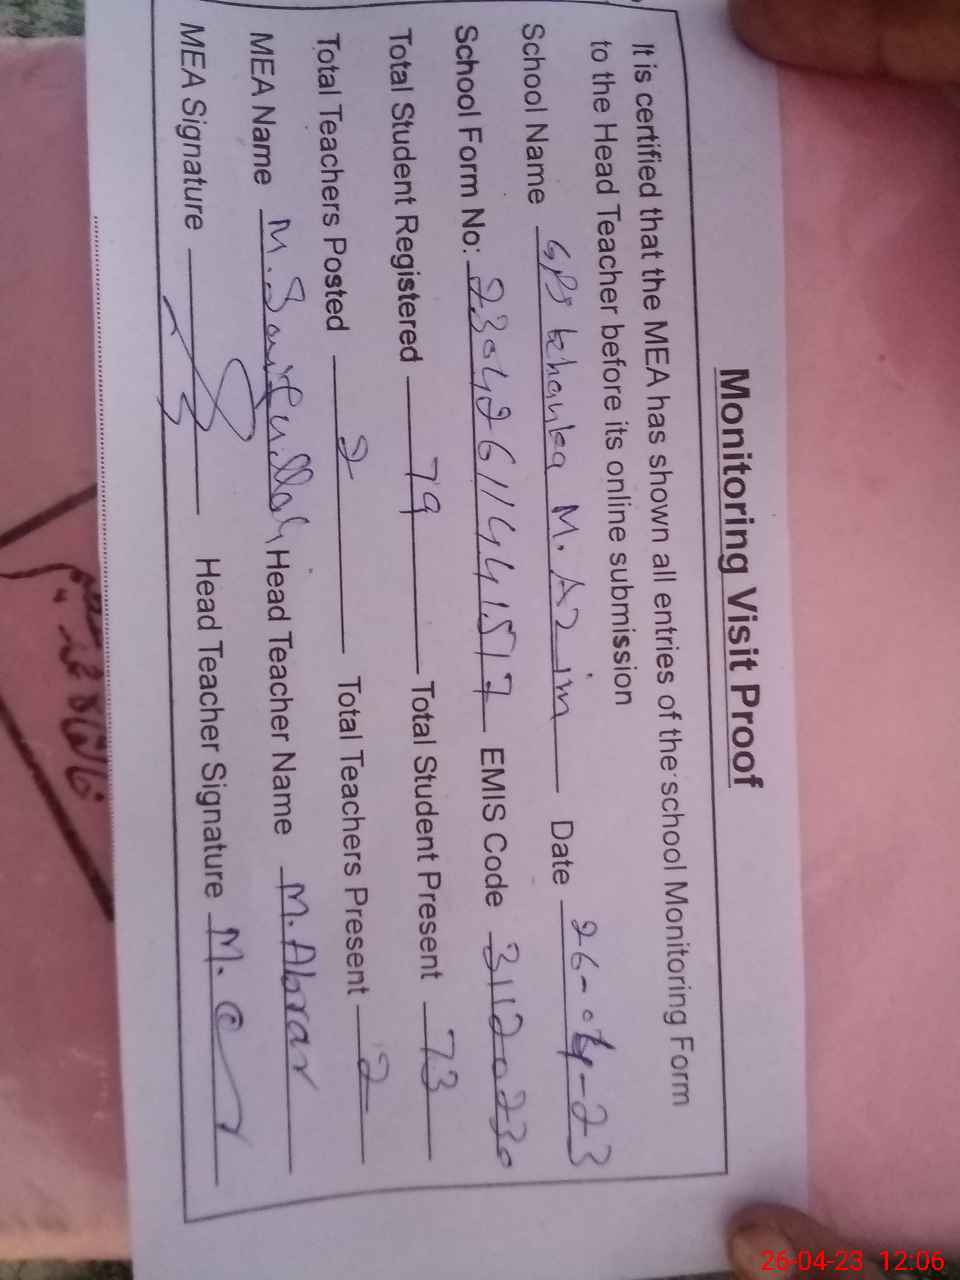 Monitoring Visit Proof
It is certified that the MEA has shown all entries of the school Monitoring Form
to the Head Teacher before its online submission
School Name GPS M. Azim Date 26-04-23
School Form No: EMIS Code
Total Student Registered 79 Total Student Present 73
Total Teachers Posted 2 Total Teachers Present 2
MEA Name M. Head Teacher Name M. Abrar
MEA Signature Head Teacher Signature
26-04-23 12:06